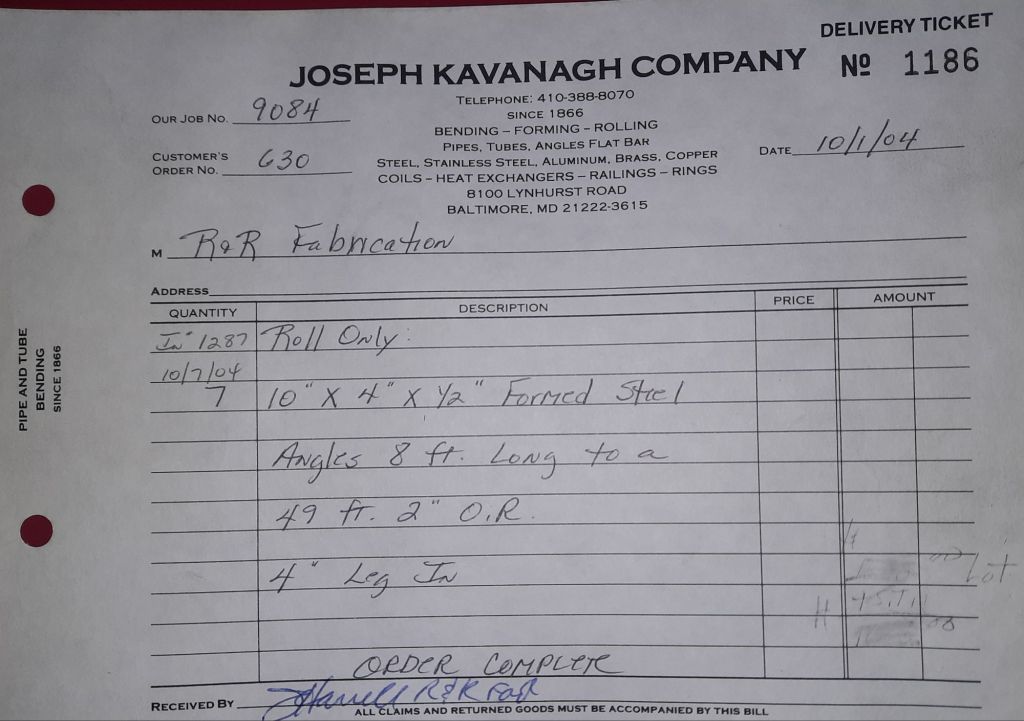 DELIVERY TICKET
JOSEPH KAVANAGH COMPANY
Nº 1186
TELEPHONE: 410-388-8070
SINCE 1866
BENDING – FORMING – ROLLING
PIPES, TUBES, ANGLES FLAT BAR
STEEL, STAINLESS STEEL, ALUMINUM, BRASS, COPPER
COILS – HEAT EXCHANGERS – RAILINGS – RINGS
8100 LYNHURST ROAD
BALTIMORE, MD 21222-3615
OUR JOB NO. 9084
CUSTOMER'S
ORDER NO. 630
DATE 10/1/04
M R&R Fabrication
ADDRESS
QUANTITY DESCRIPTION PRICE AMOUNT
In" 1287 Roll Only:
10/7/04
7 10" X 4" X 1/2" Formed Steel
Angles 8 ft. Long to a
49 ft. 2" O.R.
4" Leg In
Lot
ORDER COMPLETE
RECEIVED BY R&R Fab
ALL CLAIMS AND RETURNED GOODS MUST BE ACCOMPANIED BY THIS BILL
PIPE AND TUBE
BENDING
SINCE 1866